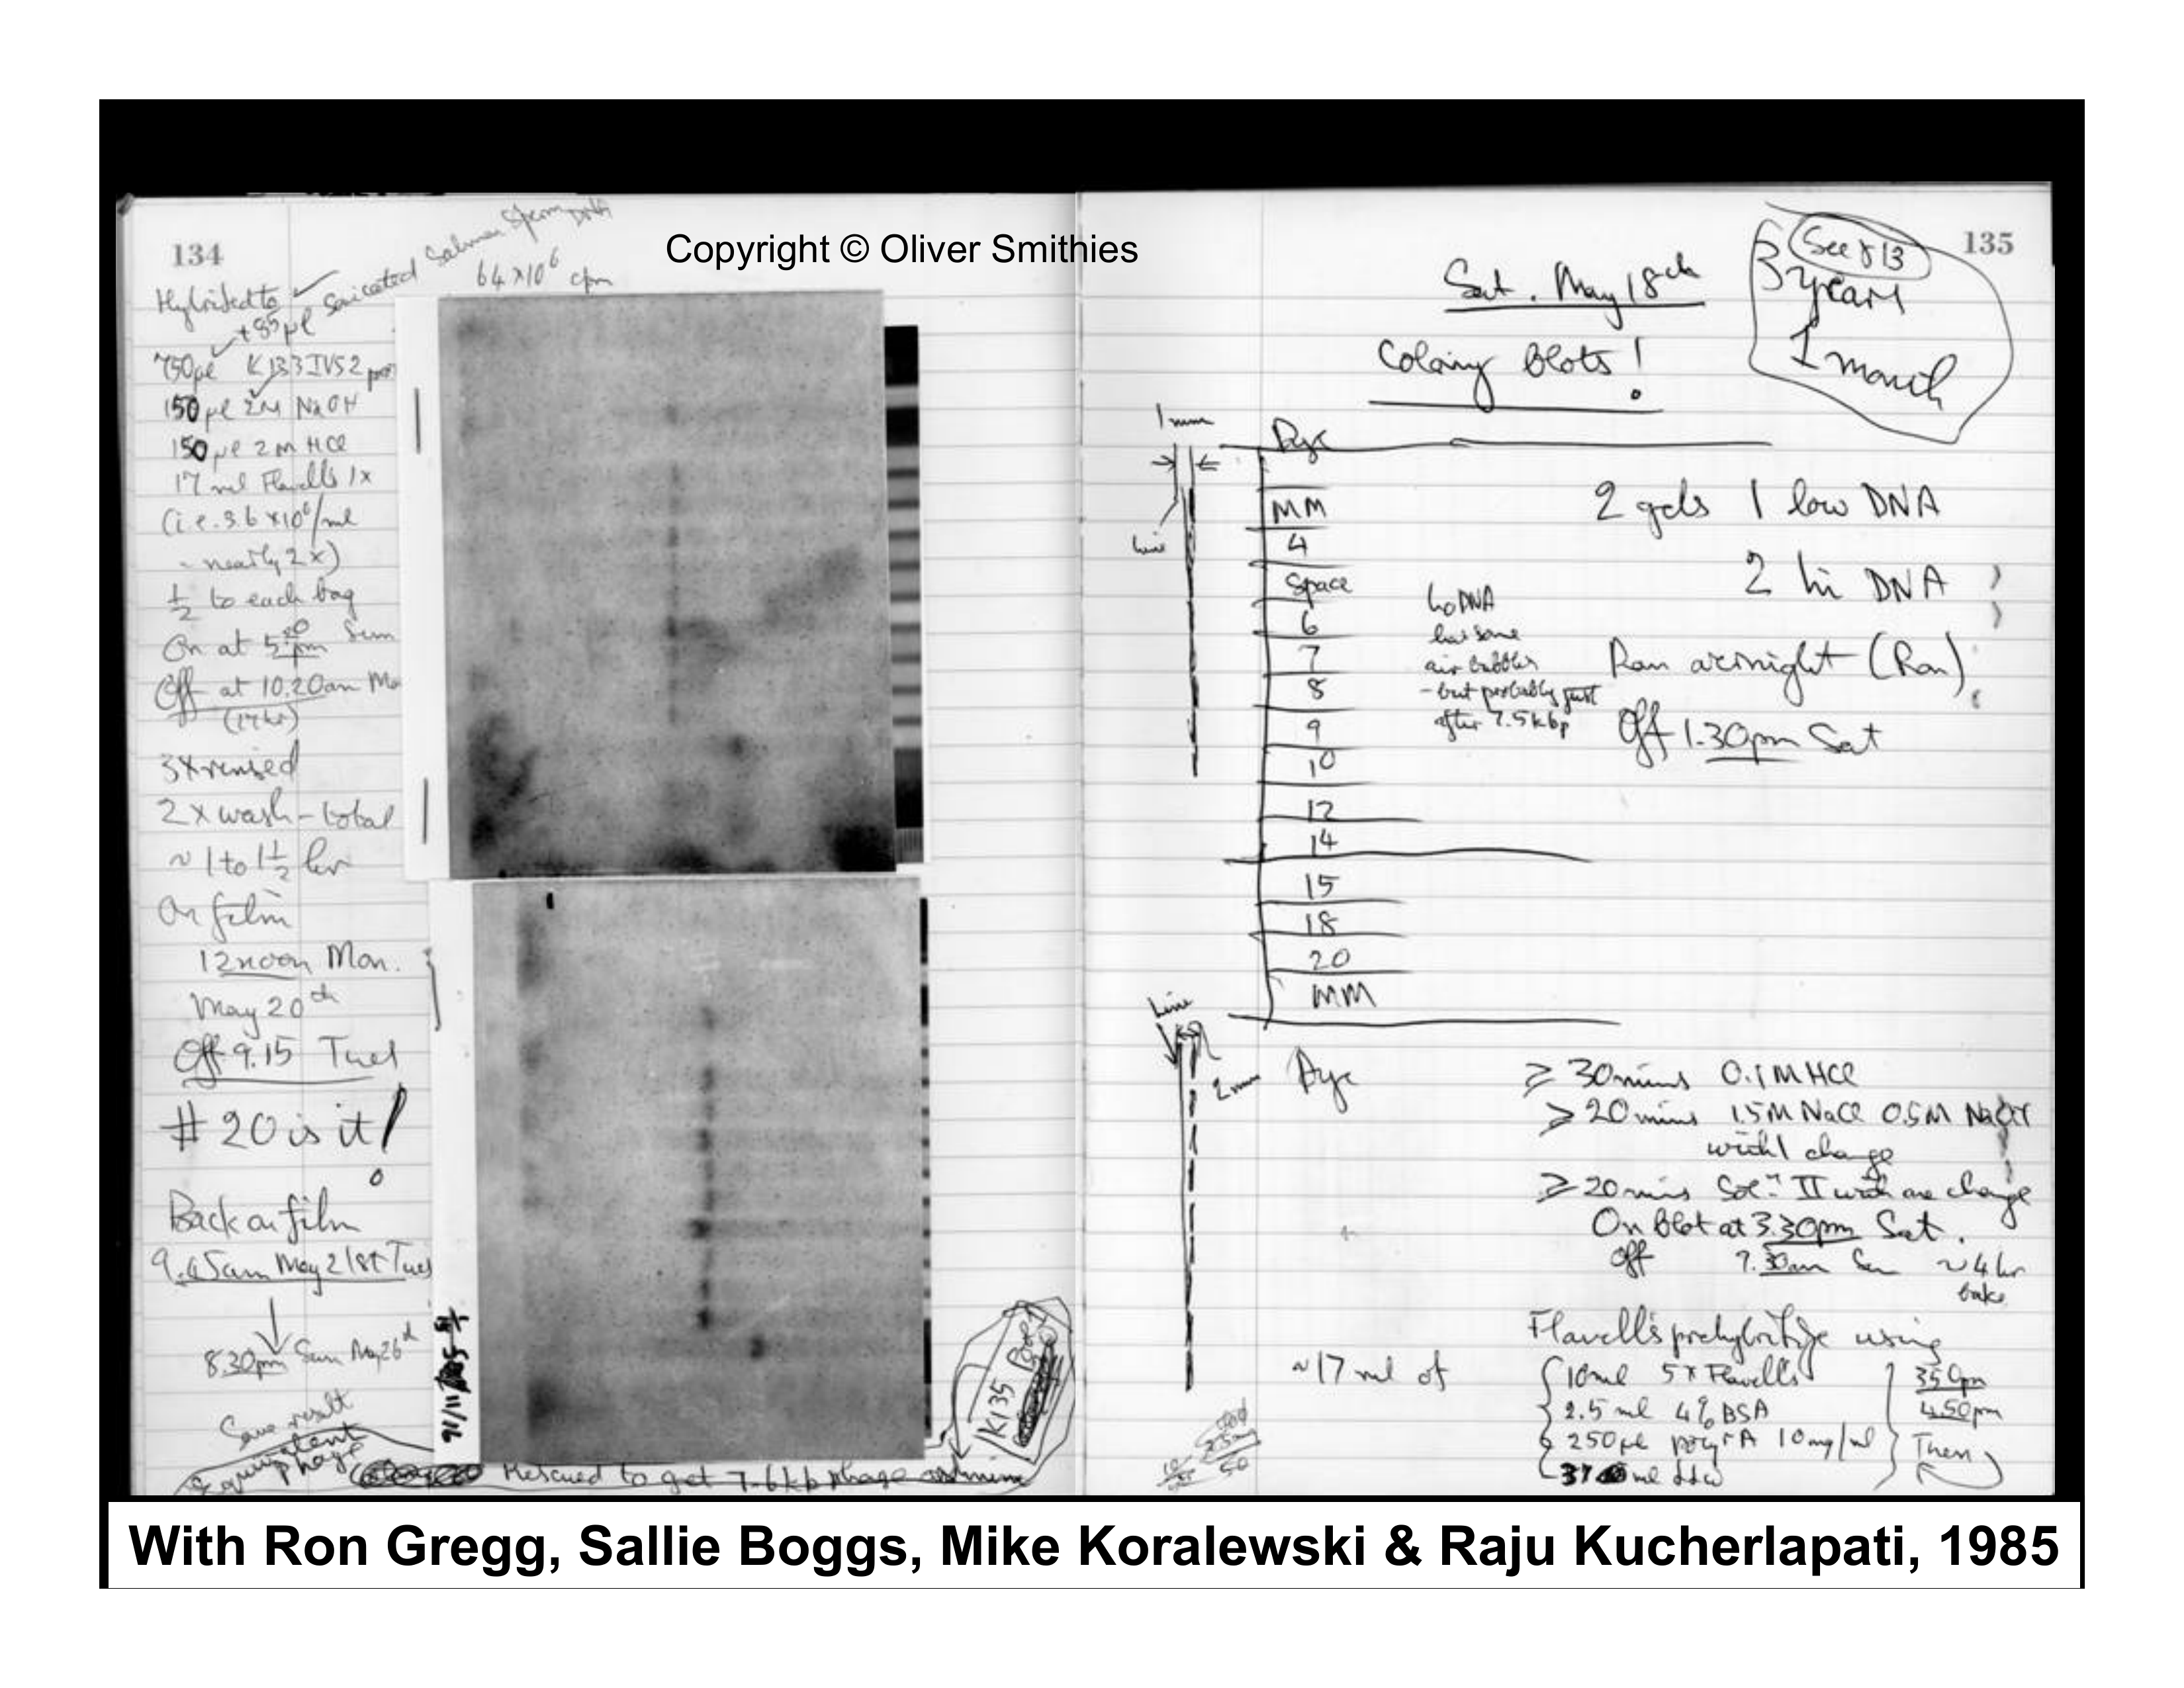 Copyright © Oliver Smithies
134
sonicated Salmon Sperm DNA
64 x 10⁶ cpm
Hybrided to
+ 85 µl
750 µl K133 IVS2
150 µl 2M NaOH
150 µl 2M HCl
17 ml Flavells 1x
(i.e. 3.6 x 10⁶/ml
- nearly 2x)
½ to each bag
On at 5.20 pm Sun
Off at 10.20am Mo
(17 hr)
3x rinsed
2 x wash - total
~ 1 to 1½ hr
On film
12 noon Mon.
May 20th
Off 9.15 Tues
# 20 is it!
Back on film
9.45am May 21st Tues
8.30pm Sun May 26th
Same result
Equivalent
phage
Rescued to get 7.6kb phage
K135
135
See p 13
3 years
1 month
Sat. May 18th
Colony Blots!
1 mm
Line
Dye
MM
4
Space
6
7
8
9
10
12
14
15
18
20
MM
Dye
2 gels 1 low DNA
2 hi DNA
Lo DNA
has some
air bubbles
- but probably just
after 7.5 kbp
Ran overnight (Ron)
Off 1.30pm Sat
Line
2mm
≥ 30 mins 0.1 M HCl
≥ 20 mins 1.5M NaCl 0.5M NaOH
with 1 change
≥ 20 mins Solⁿ II with one change
On Blot at 3.30pm Sat.
Off 7.30am Sun ~ 4 hr
bake
Flavell's prehybridize using
~17 ml of
10 ml 5 x Flavells
2.5 ml 4% BSA
250 µl poly rA 10 mg/ml
ml ddw
3.50pm
4.50pm
Then
With Ron Gregg, Sallie Boggs, Mike Koralewski & Raju Kucherlapati, 1985